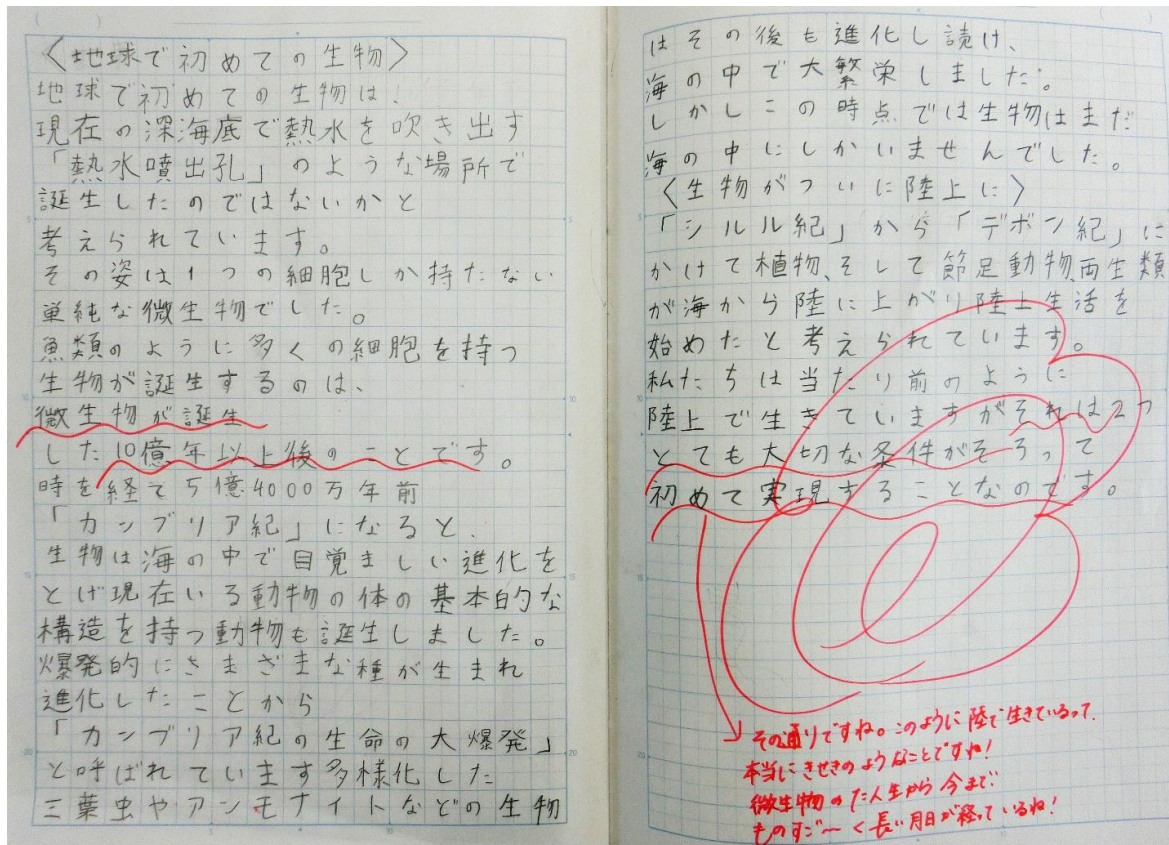 〈地球で初めての生物〉
地球で初めての生物は、
現在の深海底で熱水を吹き出す
「熱水噴出孔」のような場所で
誕生したのではないかと
考えられています。
その姿は1つの細胞しか持たない
単純な微生物でした。
魚類のように多くの細胞を持つ
生物が誕生するのは、
微生物が誕生
した10億年以上後のことです。
時を経て5億4000万年前
「カンブリア紀」になると、
生物は海の中で目覚ましい進化を
とげ現在いる動物の体の基本的な
構造を持つ動物も誕生しました。
爆発的にさまざまな種が生まれ
進化したことから
「カンブリア紀の生命の大爆発」
と呼ばれています多様化した
三葉虫やアンモナイトなどの生物
はその後も進化し読け、
海の中で大繁栄しました。
しかしこの時点では生物はまだ
海の中にしかいませんでした。
〈生物がついに陸上に〉
「シルル紀」から「デボン紀」に
かけて植物、そして節足動物、両生類
が海から陸に上がり陸上生活を
始めたと考えられています。
私たちは当たり前のように
陸上で生きていますがそれは2つ
とても大切な条件がそろって
初めて実現することなのです。
その通りですね。このように陸で生きているって、
本当にきせきのようなことですね!
微生物のたん生から今まで
ものすご〜く長い月日が経っているね!